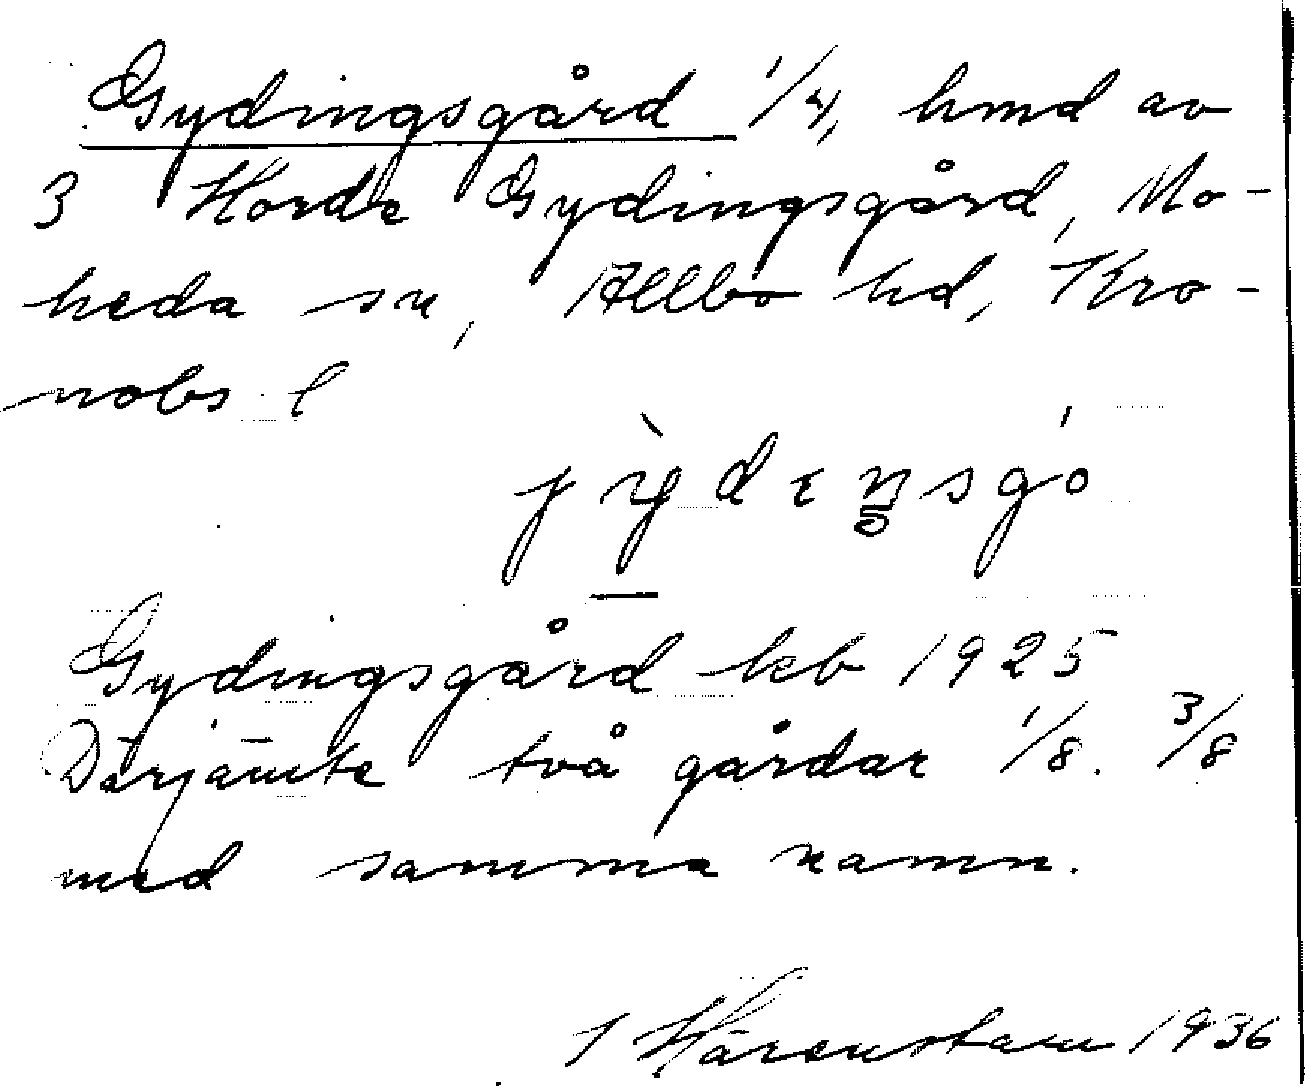 Gydingsgård 1/4, hmd av
3 Horda Gydingsgård, Mo-
heda sn, Allbo hd, Kro-
nobs l
Gydingsgård kb 1925
Därjämte två gårdar 1/8. 3/8
med samma namn.
J Härenstam 1936